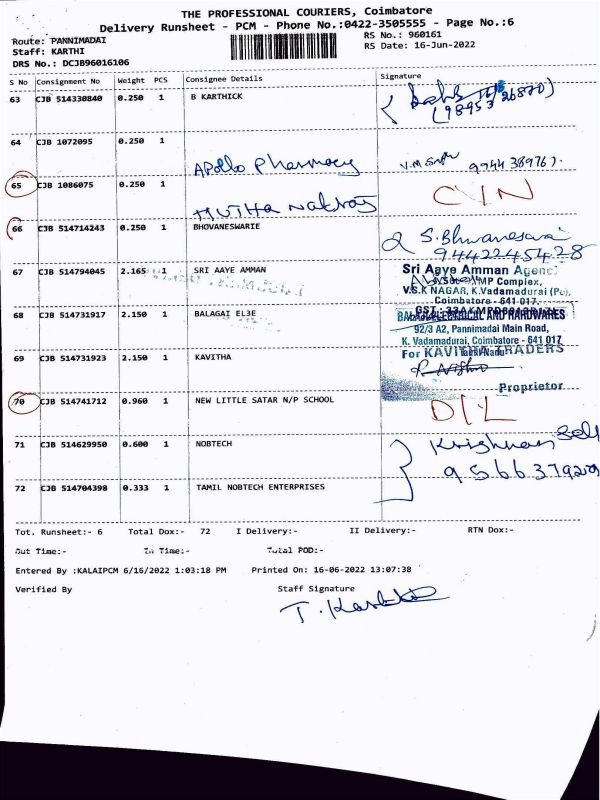 THE PROFESSIONAL COURIERS, Coimbatore
Delivery Runsheet - PCM - Phone No.:0422-3505555 - Page No.:6
Route: PANNIMADAI
RS No.: 960161
Staff: KARTHI
RS Date: 16-Jun-2022
DRS No.: DCJB96016106
S No Consignment No Weight PCS Consignee Details Signature
63 CJB 514330840 0.250 1 B KARTHICK
64 CJB 1072095 0.250 1
Apollo Pharmacy
65 CJB 1086075 0.250 1 C/N
66 CJB 514714243 0.250 1 BHOVANESWARIE S. Bhuvaneswari
9442245428
67 CJB 514794045 2.165 1 SRI AAYE AMMAN Sri Aaye Amman
V.S.K NAGAR, K.Vadamadurai (Po),
Coimbatore - 641 017.
68 CJB 514731917 2.150 1 BALAGAI EL3E
92/3 A2, Pannimadai Main Road,
K. Vadamadurai, Coimbatore - 641 017
69 CJB 514731923 2.150 1 KAVITHA For KAVITHA TRADERS
Proprietor
70 CJB 514741712 0.960 1 NEW LITTLE SATAR N/P SCHOOL D/L
71 CJB 514629950 0.600 1 NOBTECH Krishnan Self
72 CJB 514704398 0.333 1 TAMIL NOBTECH ENTERPRISES
Tot. Runsheet:- 6 Total Dox:- 72 I Delivery:- II Delivery:- RTN Dox:-
Out Time:- In Time:- Total POD:-
Entered By :KALAIPCM 6/16/2022 1:03:18 PM Printed On: 16-06-2022 13:07:38
Verified By Staff Signature